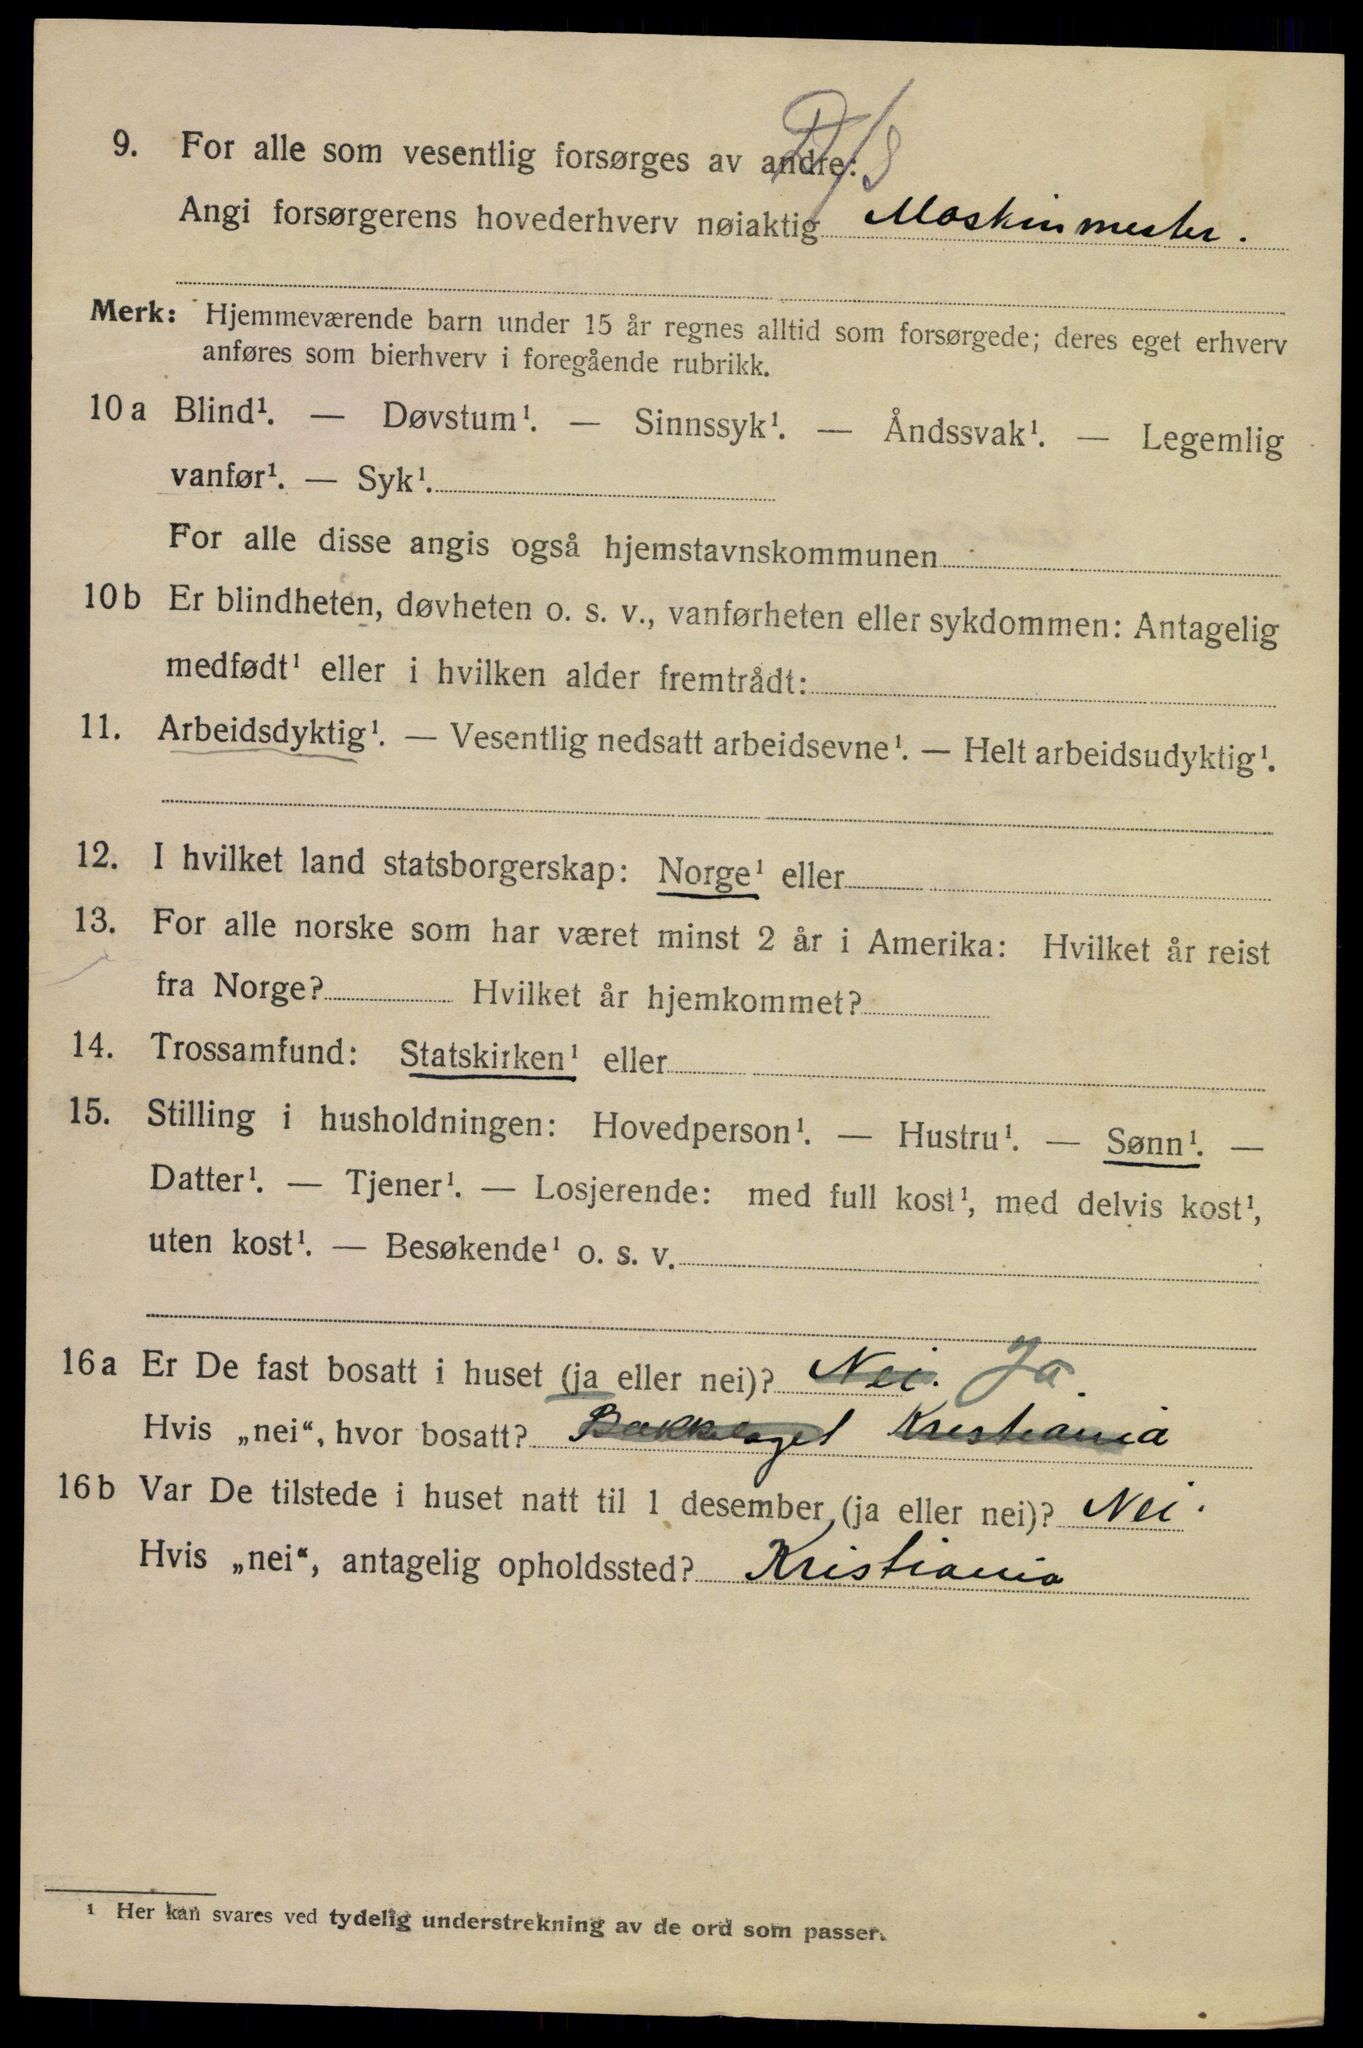 9. For alle som vesentlig forsørges av andre:
Angi forsørgerens hovederhverv nøiaktig Maskinmester.
Merk: Hjemmeværende barn under 15 år regnes alltid som forsørgede; deres eget erhverv
anføres som bierhverv i foregående rubrikk.
10a Blind¹. — Døvstum¹. — Sinnssyk¹. — Åndssvak¹. — Legemlig
vanfør¹. — Syk¹.
For alle disse angis også hjemstavnskommunen
10b Er blindheten, døvheten o. s. v., vanførheten eller sykdommen: Antagelig
medfødt¹ eller i hvilken alder fremtrådt:
11. Arbeidsdyktig¹. — Vesentlig nedsatt arbeidsevne¹. — Helt arbeidsudyktig¹.
12. I hvilket land statsborgerskap: Norge¹ eller
13. For alle norske som har været minst 2 år i Amerika: Hvilket år reist
fra Norge? Hvilket år hjemkommet?
14. Trossamfund: Statskirken¹ eller
15. Stilling i husholdningen: Hovedperson¹. — Hustru¹. — Sønn¹. —
Datter¹. — Tjener¹. — Losjerende: med full kost¹, med delvis kost¹,
uten kost¹. — Besøkende¹ o. s. v.
16a Er De fast bosatt i huset (ja eller nei)? Nei. Ja.
Hvis „nei“, hvor bosatt? Bækkelaget Kristiania
16b Var De tilstede i huset natt til 1 desember (ja eller nei)? Nei.
Hvis „nei“, antagelig opholdssted? Kristiania
¹ Her kan svares ved tydelig understrekning av de ord som passer.